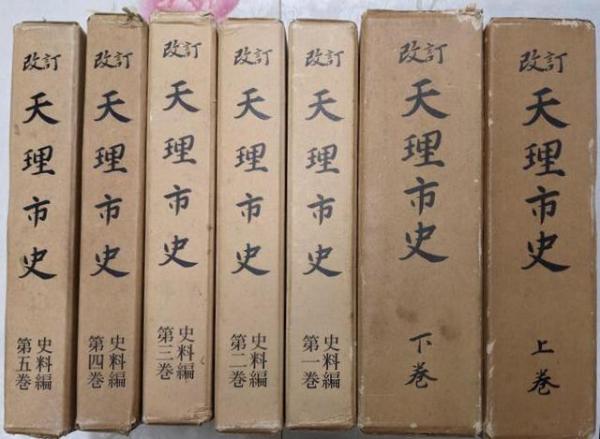 改訂
天理市史
上巻
改訂
天理市史
下巻
改訂
天理市史
史料編
第一巻
改訂
天理市史
史料編
第二巻
改訂
天理市史
史料編
第三巻
改訂
天理市史
史料編
第四巻
改訂
天理市史
史料編
第五巻